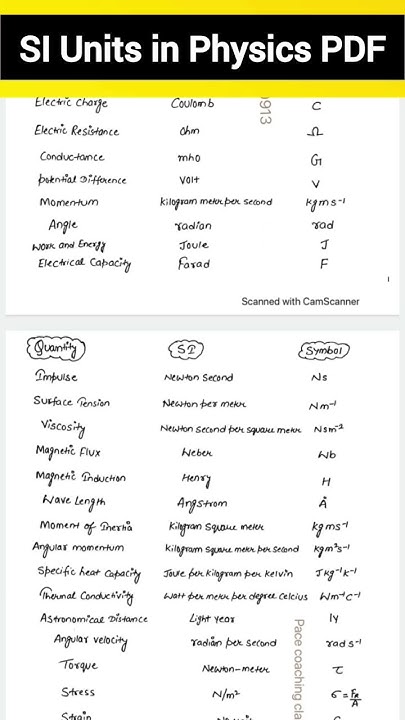 SI Units in Physics PDF
Electric Charge Coulomb C
0913
Electric Resistance Ohm Ω
Conductance mho G
Potential Difference Volt V
Momentum kilogram meter per second kgms⁻¹
Angle radian rad
Work and Energy Joule J
Electrical Capacity Farad F
Scanned with CamScanner
Quantity SI Symbol
Impulse Newton Second Ns
Surface Tension Newton per meter Nm⁻¹
Viscosity Newton Second per square meter Nsm⁻²
Magnetic Flux Weber Wb
Magnetic Induction Henry H
Wave Length Angstrom Å
Moment of Inertia Kilogram Square meter kgms⁻¹
Angular momentum Kilogram square meter per second kgm²s⁻¹
Specific heat Capacity Joule per kilogram per kelvin Jkg⁻¹k⁻¹
Thermal Conductivity Watt per meter per degree Celcius Wm⁻¹C⁻¹
Astronomical Distance Light year ly
Angular velocity radian per second rad s⁻¹
Pace coaching cla
Torque Newton-meter τ
Stress N/m² σ = Fn/A
Strain